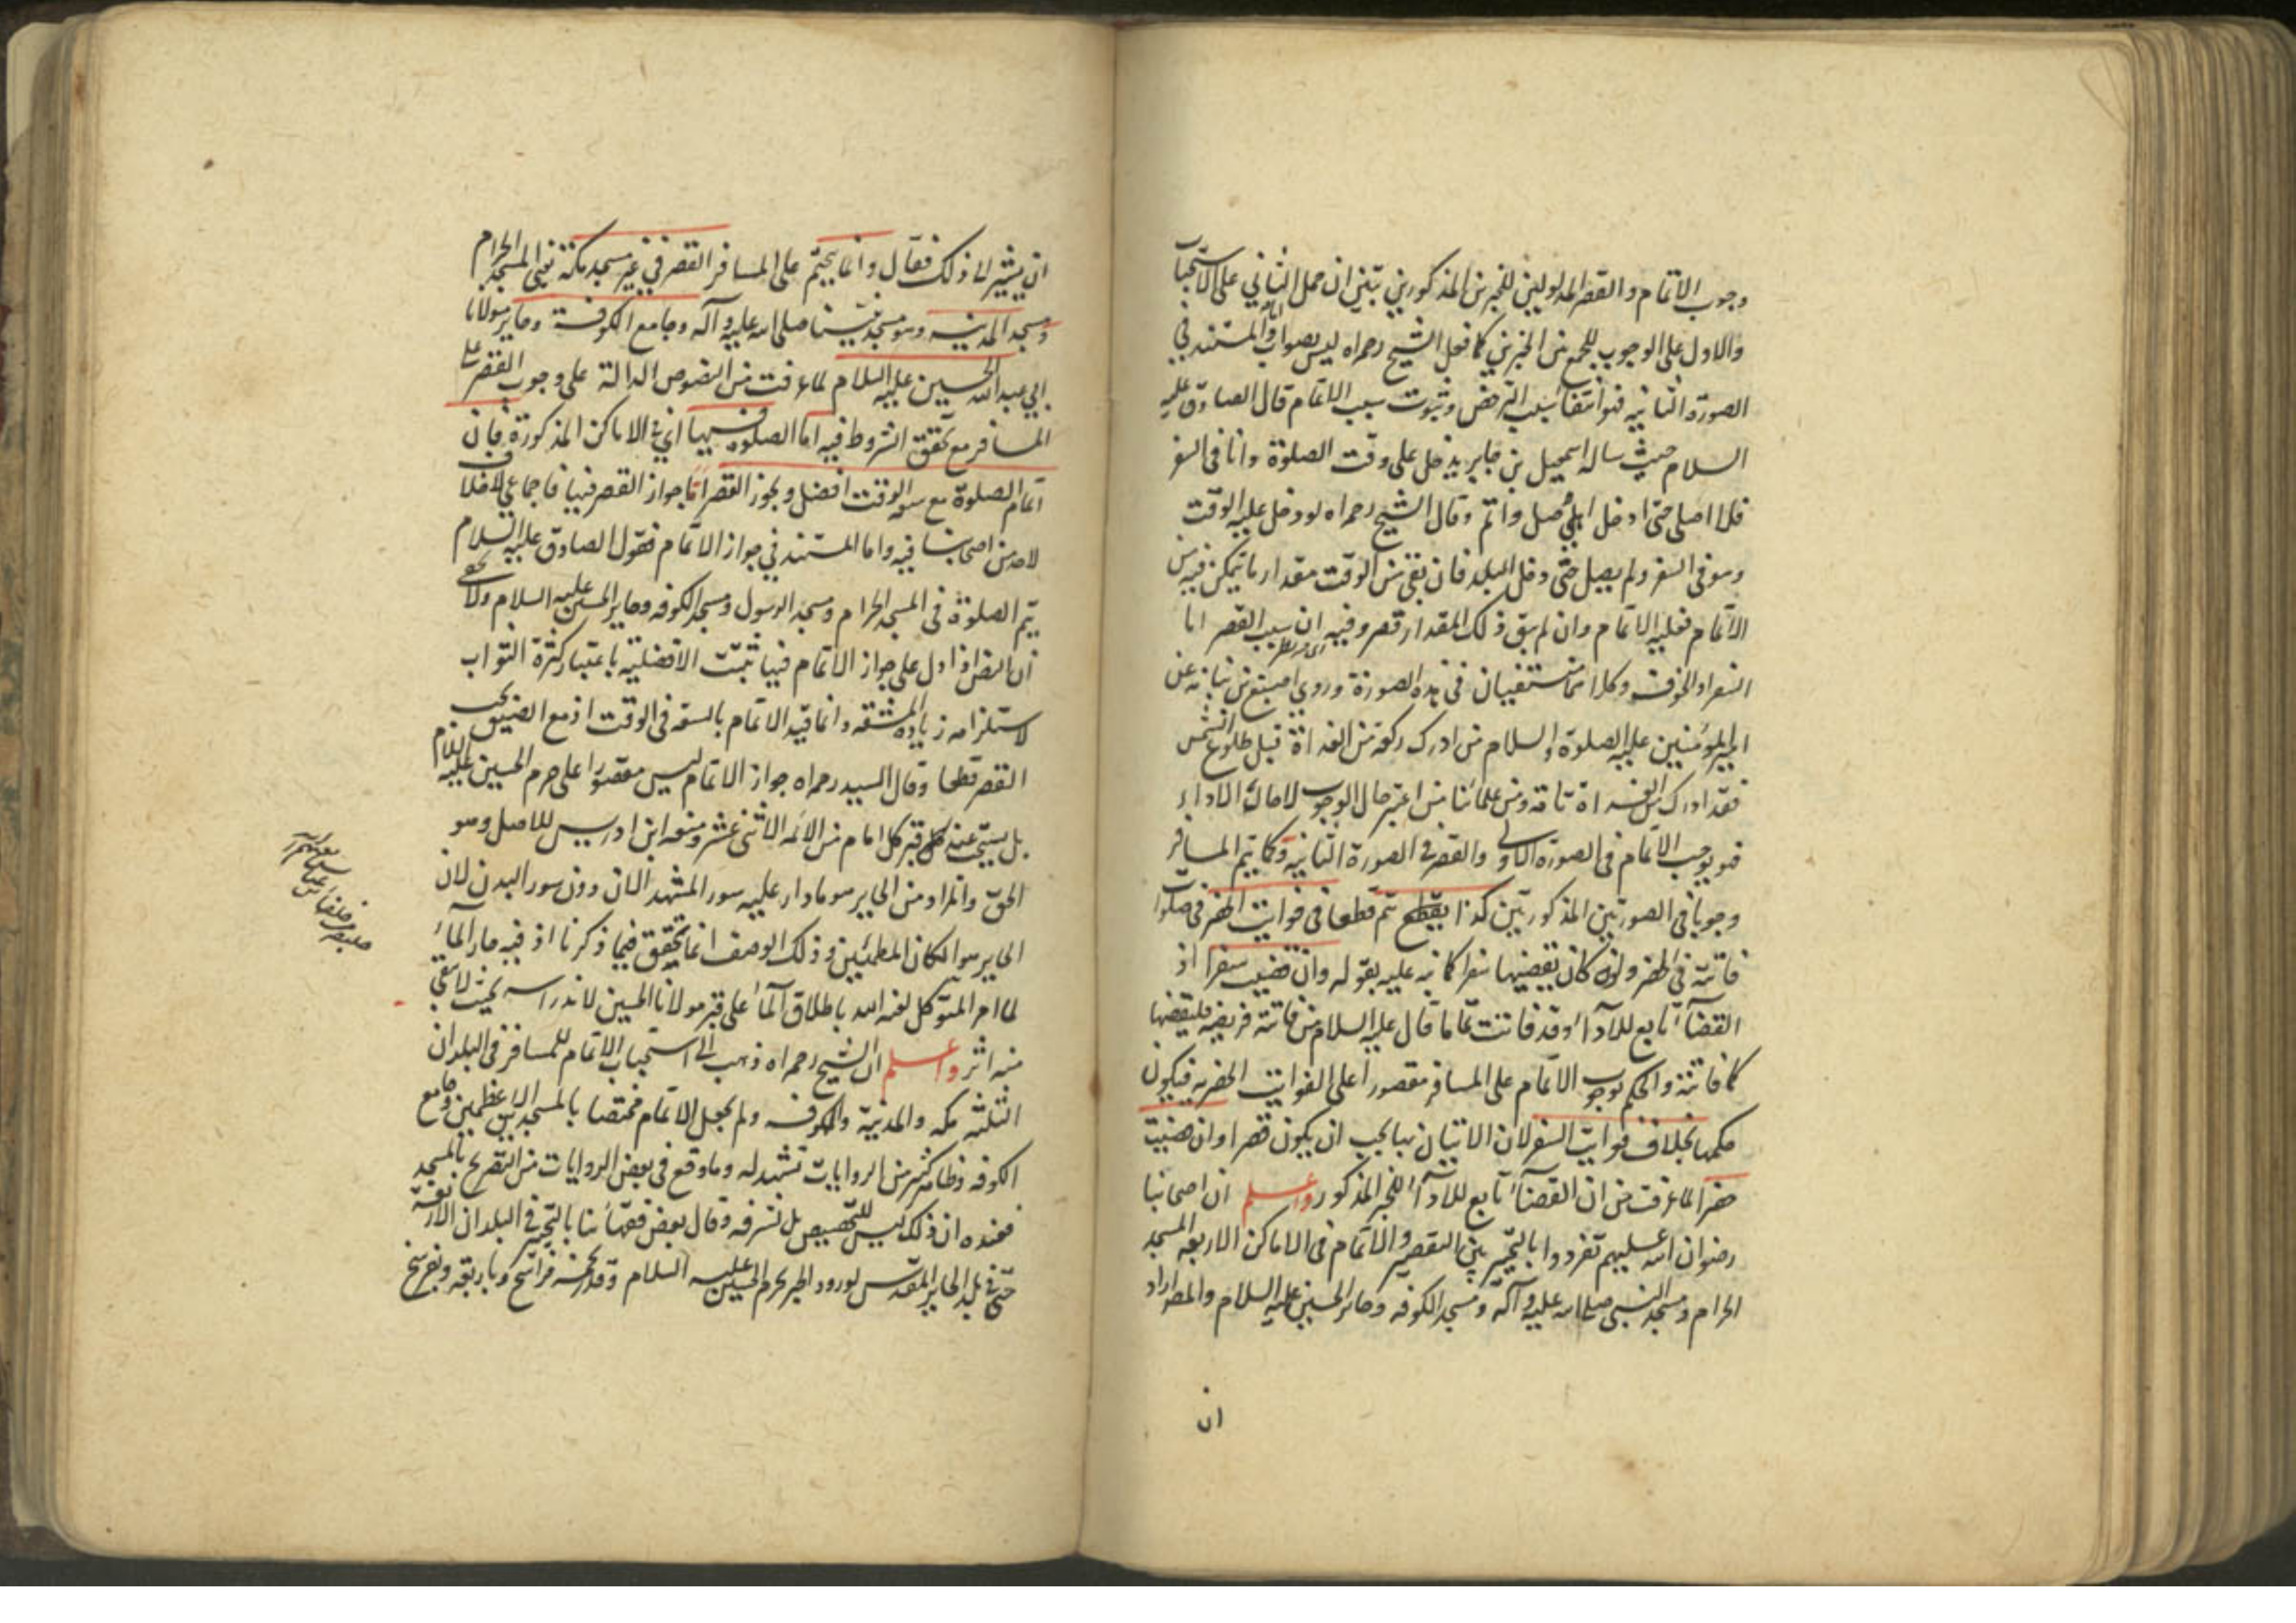 وجوب الاتمام والقصر المدلولين للخبرين المذكورين تبين ان حمل الثاني على الاستحباب
والاول على الوجوب للجمع بين الخبرين كما فعل الشيخ رحمه الله ليس بصواب واما المستند في
الصورة الثانية فهو انتفاء سبب الترخص وثبوت سبب الاتمام قال الصادق عليه
السلام حيث ساله اسمعيل بن جابر يدخل على وقت الصلوة وانا في السفر
فلا اصلي حتى ادخل اهلي صل واتم وقال الشيخ رحمه الله لو دخل عليه الوقت
وهو في السفر ولم يصل حتى دخل البلد فان بقي من الوقت مقدار ما يتمكن فيه من
الاتمام فعليه الاتمام وان لم يبق ذلك المقدار قصر وفيه ان سبب القصر اما
السفر او الخوف وكلاهما منتفيان في هذه الصورة وروي اصبغ بن نباته عن
امير المؤمنين عليه الصلوة والسلام من ادرك ركعة من الغداة قبل طلوع الشمس
فقد ادرك الغداة تامة ومن علمائنا من اعتبر حال الوجوب لا حال الاداء
فهو يوجب الاتمام في الصورة الاولى والقصر في الصورة الثانية وكما يتم المسافر
وجوبا في الصورتين المذكورتين كذا يتم قطعا في فوايت الحضر في صلوات
فاتته في الحضر وان كان يقضيها سفرا كما نبه عليه بقوله وان قضيت سفرا اذ
القضاء تابع للاداء وقد فاتت تماما قال عليه السلام من فاتته فريضة فليقضها
كما فاتته والحكم بوجوب الاتمام على المسافر مقصورا على الفوايت الحضريه فيكون
حكمها بخلاف فوايت السفر لان الاتيان بها يجب ان يكون قصرا وان قضيت
حضرا لما عرفت من ان القضاء تابع للاداء للخبر المذكور واعلم ان اصحابنا
رضوان الله عليهم تفردوا بالتخيير بين القصر والاتمام في الاماكن الاربعه المسجد
الحرام ومسجد النبي صلى الله عليه وآله ومسجد الكوفه وحائر الحسين عليه السلام والمصراراد
ان
ان يشير لما ذلك فقال وانما يتحتم على المسافر القصر في غير مسجد مكة يعني المسجد الحرام
ومسجد المدينه وهو مسجد نبينا صلى الله عليه وآله وجامع الكوفة وحاير مولانا
ابي عبد الله الحسين عليه السلام لما عرفت من النصوص الدالة على وجوب القصر على
المسافر مع تحقق الشروط فيه اما الصلوة فيها اي في الاماكن المذكورة فان
اتمام الصلوة مع سعة الوقت افضل ويجوز القصر اما جواز القصر فيها فاجماعي لا خلاف
لاحد من اصحابنا فيه واما المستند في جواز الاتمام فقول الصادق عليه السلام
يتم الصلوة في المسجد الحرام ومسجد الرسول ومسجد الكوفه وحاير الحسين عليه السلام ولا يخفى
ان النص اذا دل على جواز الاتمام فيها ثبتت الافضلية باعتبار كثرة الثواب
لاستلزامه زيادة المشقه وانما قيد الاتمام بالسعة في الوقت اذ مع الضيق يجب
القصر قطعا وقال السيد رحمه الله جواز الاتمام ليس مقصورا على حرم الحسين عليه السلام
بل يستحب عند كل قبر كل امام من الائمة الاثنى عشر ومنعه ابن ادريس للاصل وهو
الحق والمراد من الحاير هو ما دار عليه سور المشهد الان دون سور البلد لان
الحاير هو المكان المطمئن وذلك الوصف انما يتحقق فيما ذكرنا اذ فيه حار الماء
لما امر المتوكل لعنه الله باطلاق الماء على قبر مولانا الحسين لاندراسه بحيث لا يبقى
منه اثر واعلم ان الشيخ رحمه الله ذهب الى استحباب الاتمام للمسافر في البلدان
الثلثة مكه والمدينة والكوفه ولم يجعل الاتمام مختصا بالمسجدين الاعظمين وجامع
الكوفه وظاهر كثير من الروايات تشهد له وما وقع في بعض الروايات من التصريح بالمسجد
فعنده ان ذلك ليس للتخصيص بل لشرفه وقال بعض فقهائنا بالتخيير في البلدان الاربعة
حتى في بلد الحاير المقدس لورود الخبر بحرم الحسين عليه السلام وقدر بخمسة فراسخ وباربعة وبفرسخ